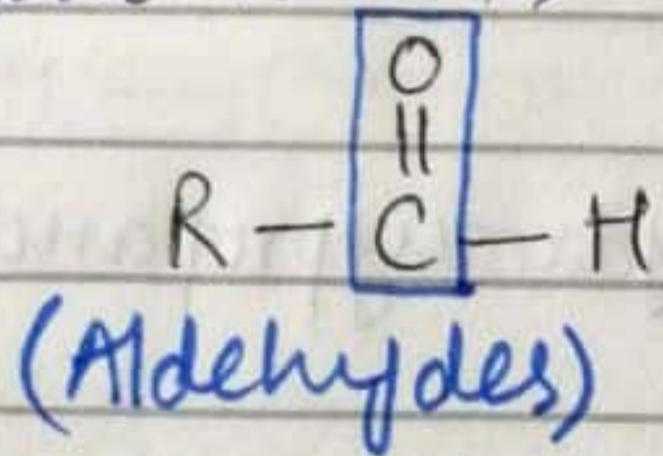 O
||
R — C — H
(Aldehydes)